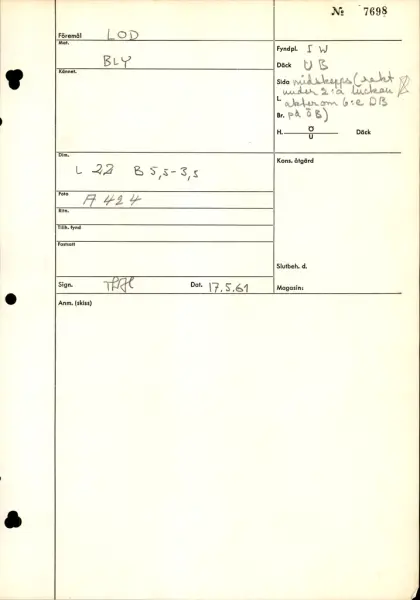 № 7698
Föremål LOD
Mat. BLY
Kännet.
Fyndpl. I W
Däck UB
Sida midskepps (rakt
under 2:a luckan
L. akter om 6:e DB
Br. på ÖB)
H. Ö U Däck
Dim. L 22 B 5,5-3,5
Kons. åtgärd
Foto A 424
Ritn.
Tillh. fynd
Fastsatt
Slutbeh. d.
Sign. Dat. 17.5.61
Magasin:
Anm. (skiss)